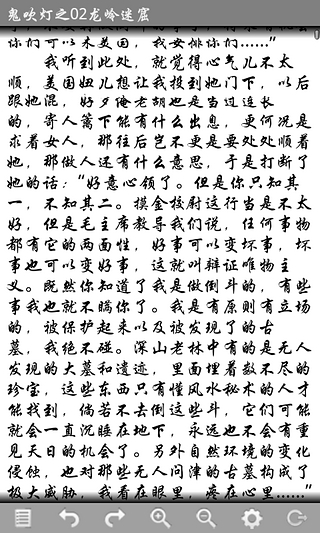 鬼吹灯之02龙岭迷窟
你们可以来美国，我安排你们……”
我听到此处，就觉得心气儿不太
顺，美国妞儿想让我投到她门下，以后
跟她混，好歹俺老胡也是当过连长
的，寄人篱下能有什么出息，更何况是
求着女人，那往后岂不更是要处处顺着
她，那做人还有什么意思，于是打断了
她的话：“好意心领了。但是你只知其
一，不知其二。摸金校尉这行当是不太
好，但是毛主席教导我们说，任何事物
都有它的两面性，好事可以变坏事，坏
事也可以变好事，这就叫辩证唯物主
义。既然你知道了我是做倒斗的，有些
事我也就不瞒你了。我是有原则有立场
的，被保护起来以及被发现了的古
墓，我绝不碰。深山老林中有的是无人
发现的大墓和遗迹，里面埋着数不尽的
珍宝，这些东西只有懂风水秘术的人才
能找到，倘若不去倒这些斗，它们可能
就会一直沉睡在地下，永远也不会有重
见天日的机会了。另外自然环境的变化
侵蚀，也对那些无人问津的古墓构成了
极大威胁，我看在眼里，疼在心里……”